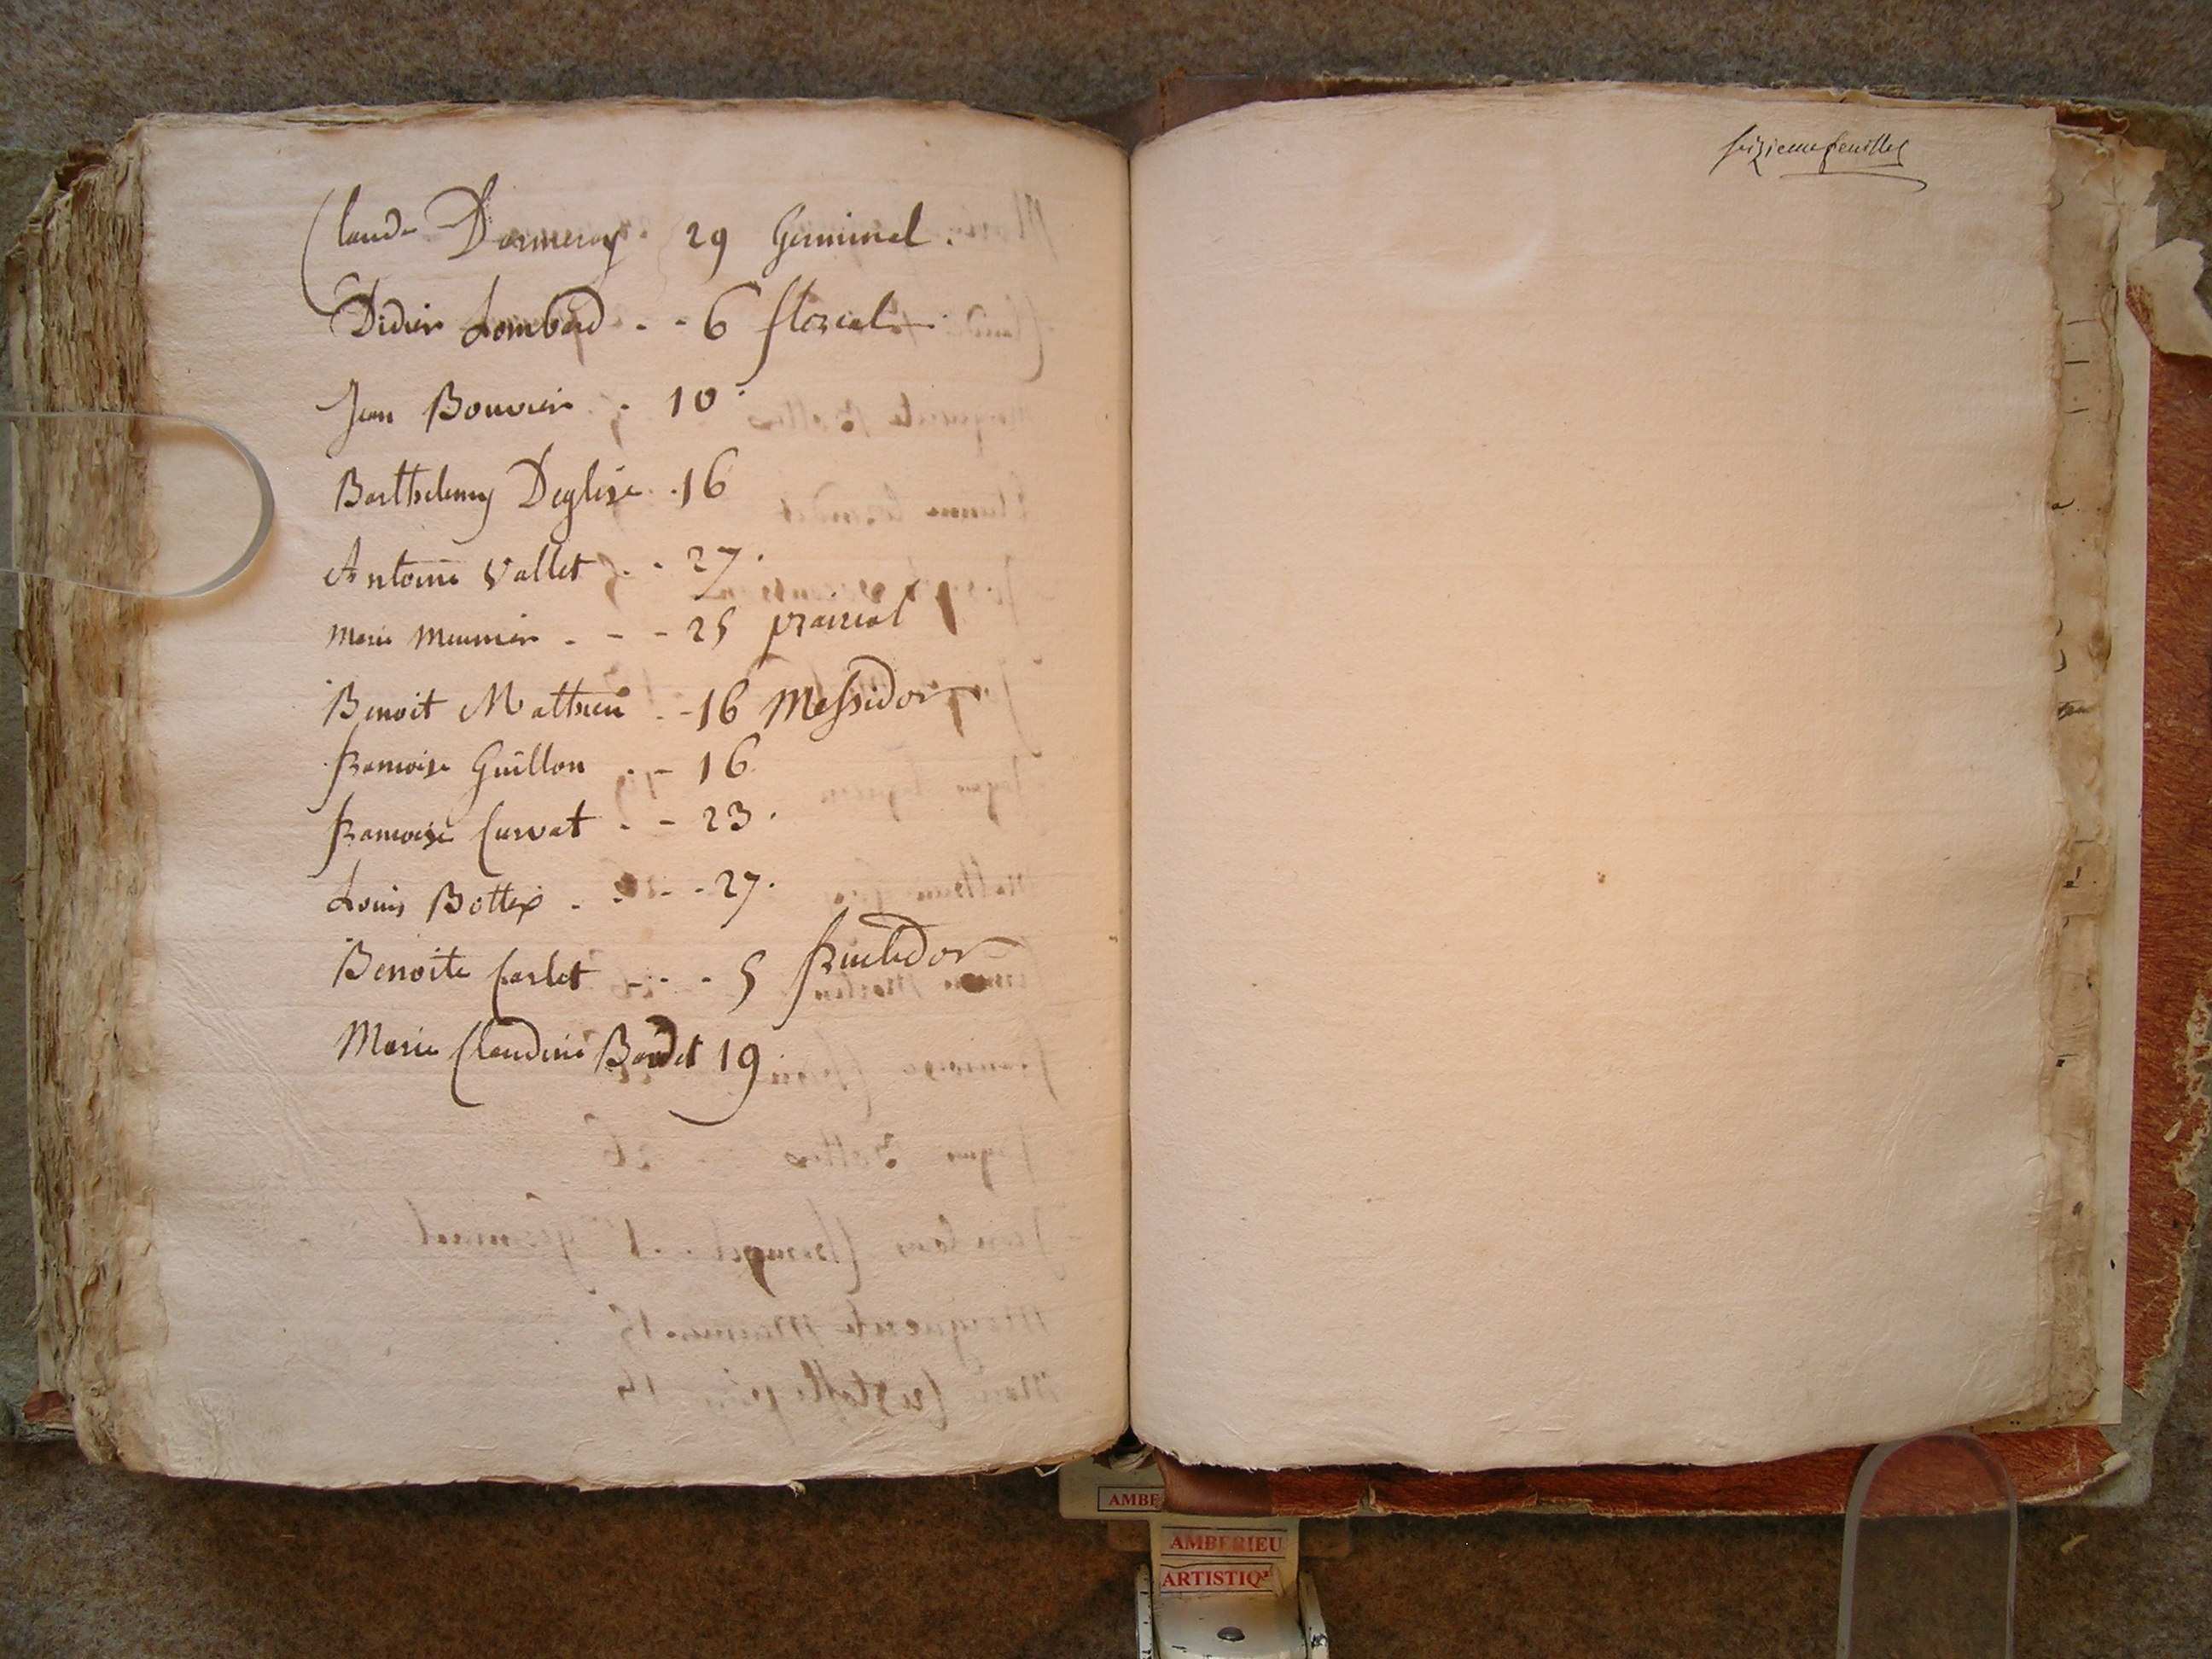 Claude Darmeroy 29 Germinal.
Didier Lombard - - 6 floreal.
Jean Bouvier - 10
Barthelemy Deglise - 16
Antoine Vallet - - 27.
marie meunier - - - 25 prairial
Benoit Mathieu - - 16 Messidor
francoise Guillon - - 16
francoise Curvat - - 23.
Louis Bottex - - - - 27.
Benoite Carlet - - - 5 fructidor
Marie Claudine Baudet 19
seizieme feuillet
AMBERIEU
ARTISTIQ